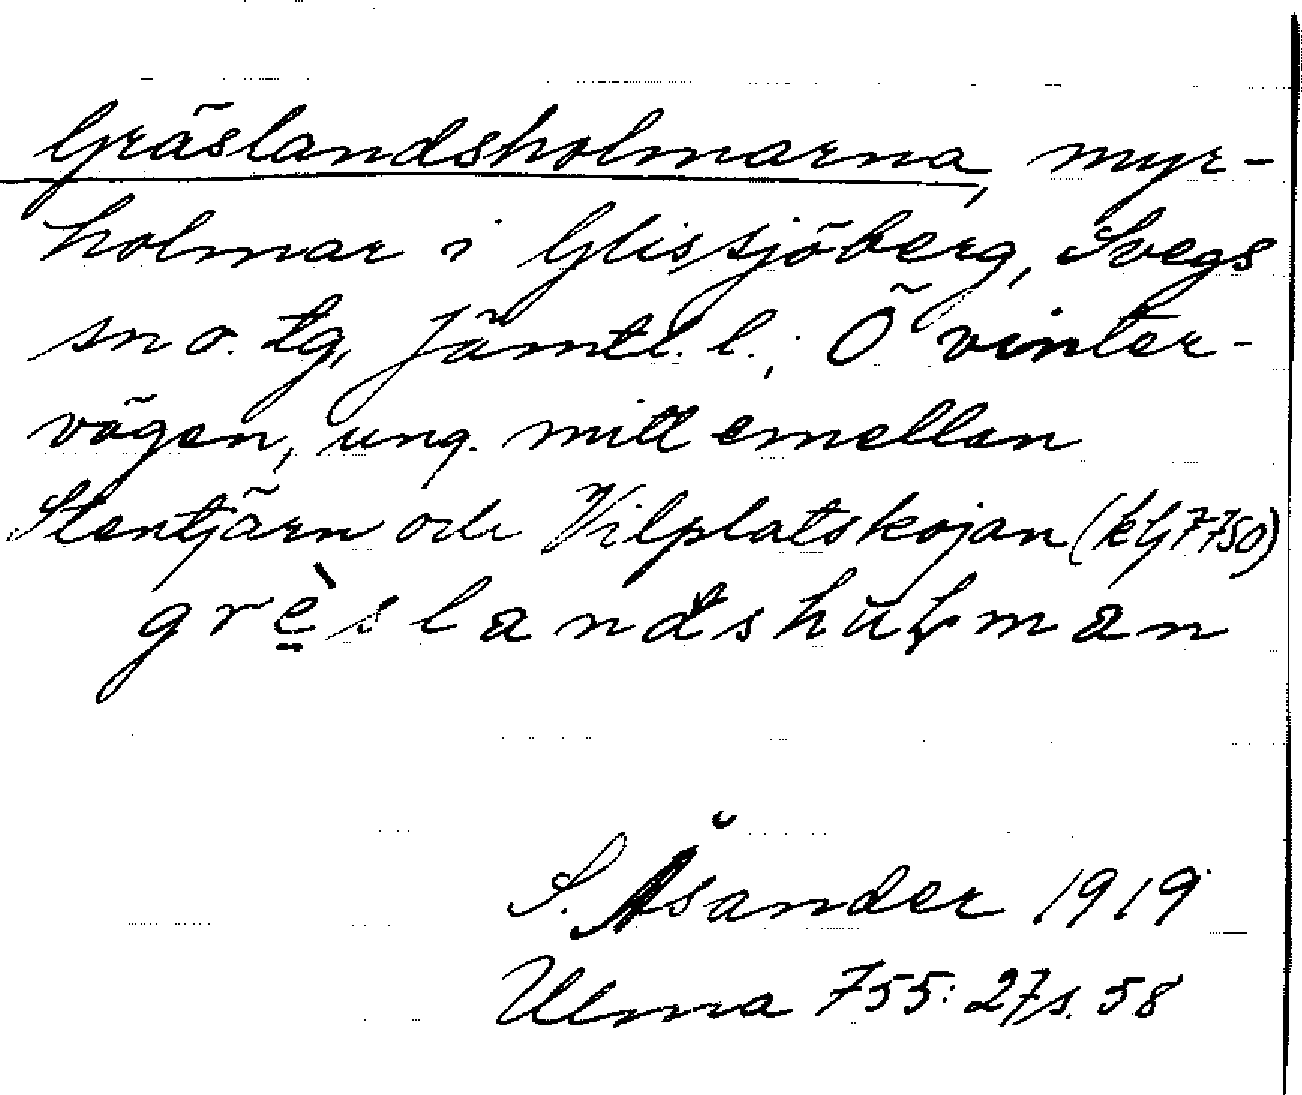 Gräslandsholmarna, myr-
holmar i Glissjöberg, Svegs
sn o. tg, Jämtl. l.; Ö vinter-
vägen, ung. mitt emellan
Stentjärn och Vilplatskojan (kG 7750)
grèslandshuḷman
S. Åsander 1919
Ulma 755:27, s. 58